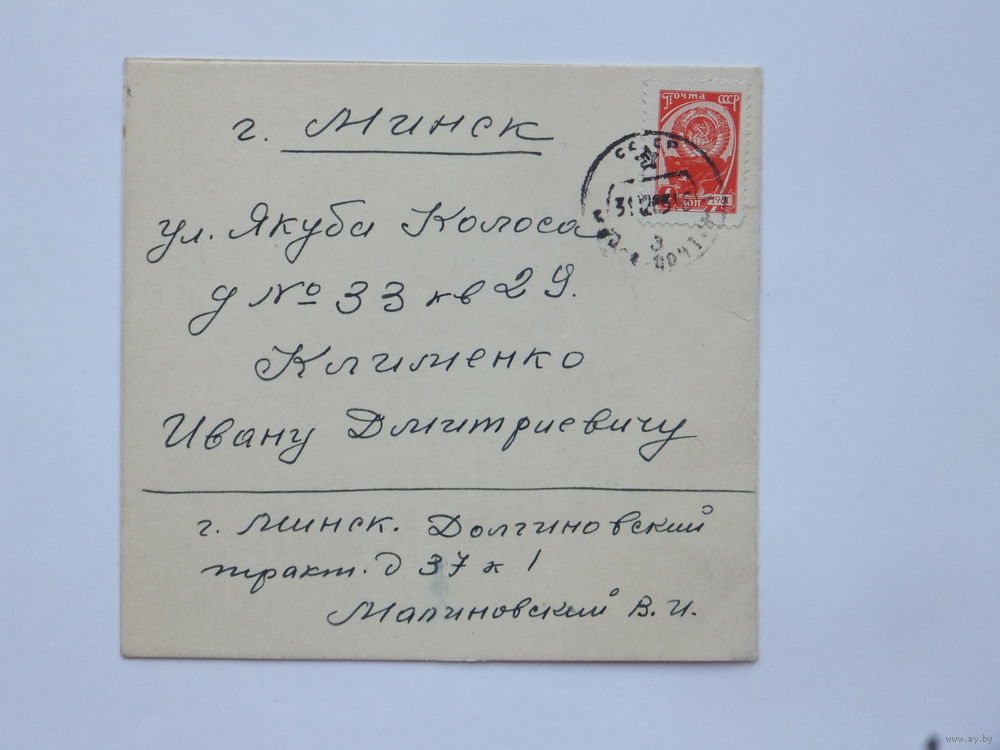 г. Минск
Почта СССР
4 коп 1961
СССР
31.12.63
ул. Якуба Колоса
д № 33 кв 29.
Клименко
Ивану Дмитриевичу
г. Минск. Долгиновский
тракт. д 37 к 1
Малиновский В. И.
www.ay.by